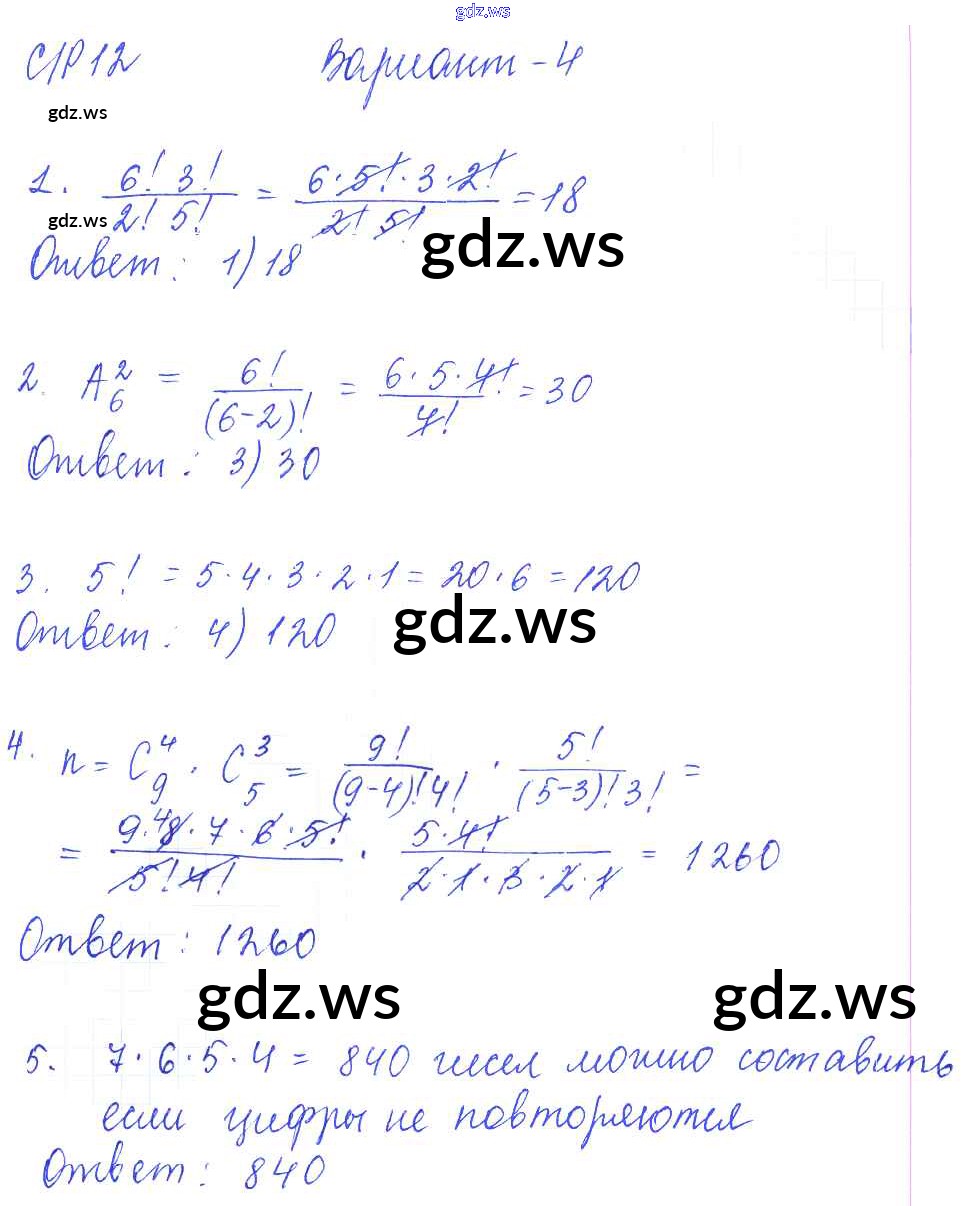 gdz.ws
С/Р 12 Вариант - 4
gdz.ws
1. 6! 3! / 2! 5! = 6 · 5! · 3 · 2! / 2! 5! = 18
gdz.ws
gdz.ws
Ответ : 1) 18
2. A₆² = 6! / (6-2)! = 6 · 5 · 4! / 4! = 30
Ответ : 3) 30
3. 5! = 5 · 4 · 3 · 2 · 1 = 20 · 6 = 120
gdz.ws
Ответ : 4) 120
4. n = C₉⁴ · C₅³ = 9! / (9-4)! 4! · 5! / (5-3)! 3! =
= 9 · 8 4 · 7 · 6 · 5! / 5! 4! · 5 · 4! / 2 · 1 · 3 · 2 · 1 = 1260
Ответ : 1260
gdz.ws gdz.ws
5. 7 · 6 · 5 · 4 = 840 чисел можно составить
если цифры не повторяются
Ответ : 840